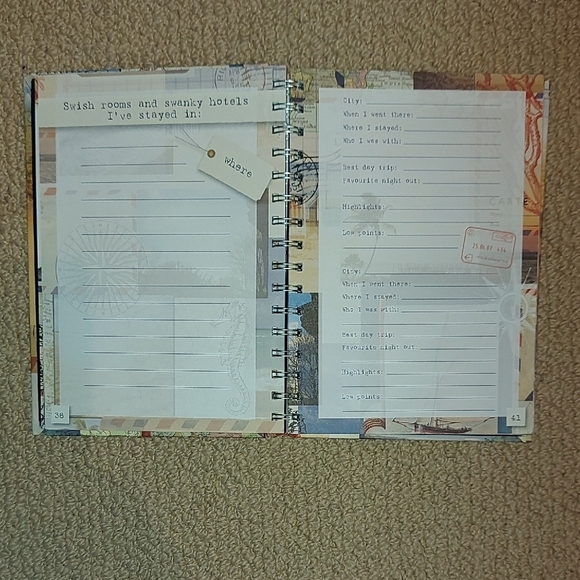 Swish rooms and swanky hotels
I've stayed in:
where
38
City:
When I went there:
Where I stayed:
Who I was with:
Best day trip:
Favourite night out:
Highlights:
Low points:
City:
When I went there:
Where I stayed:
Who I was with:
Best day trip:
Favourite night out:
Highlights:
Low points:
41